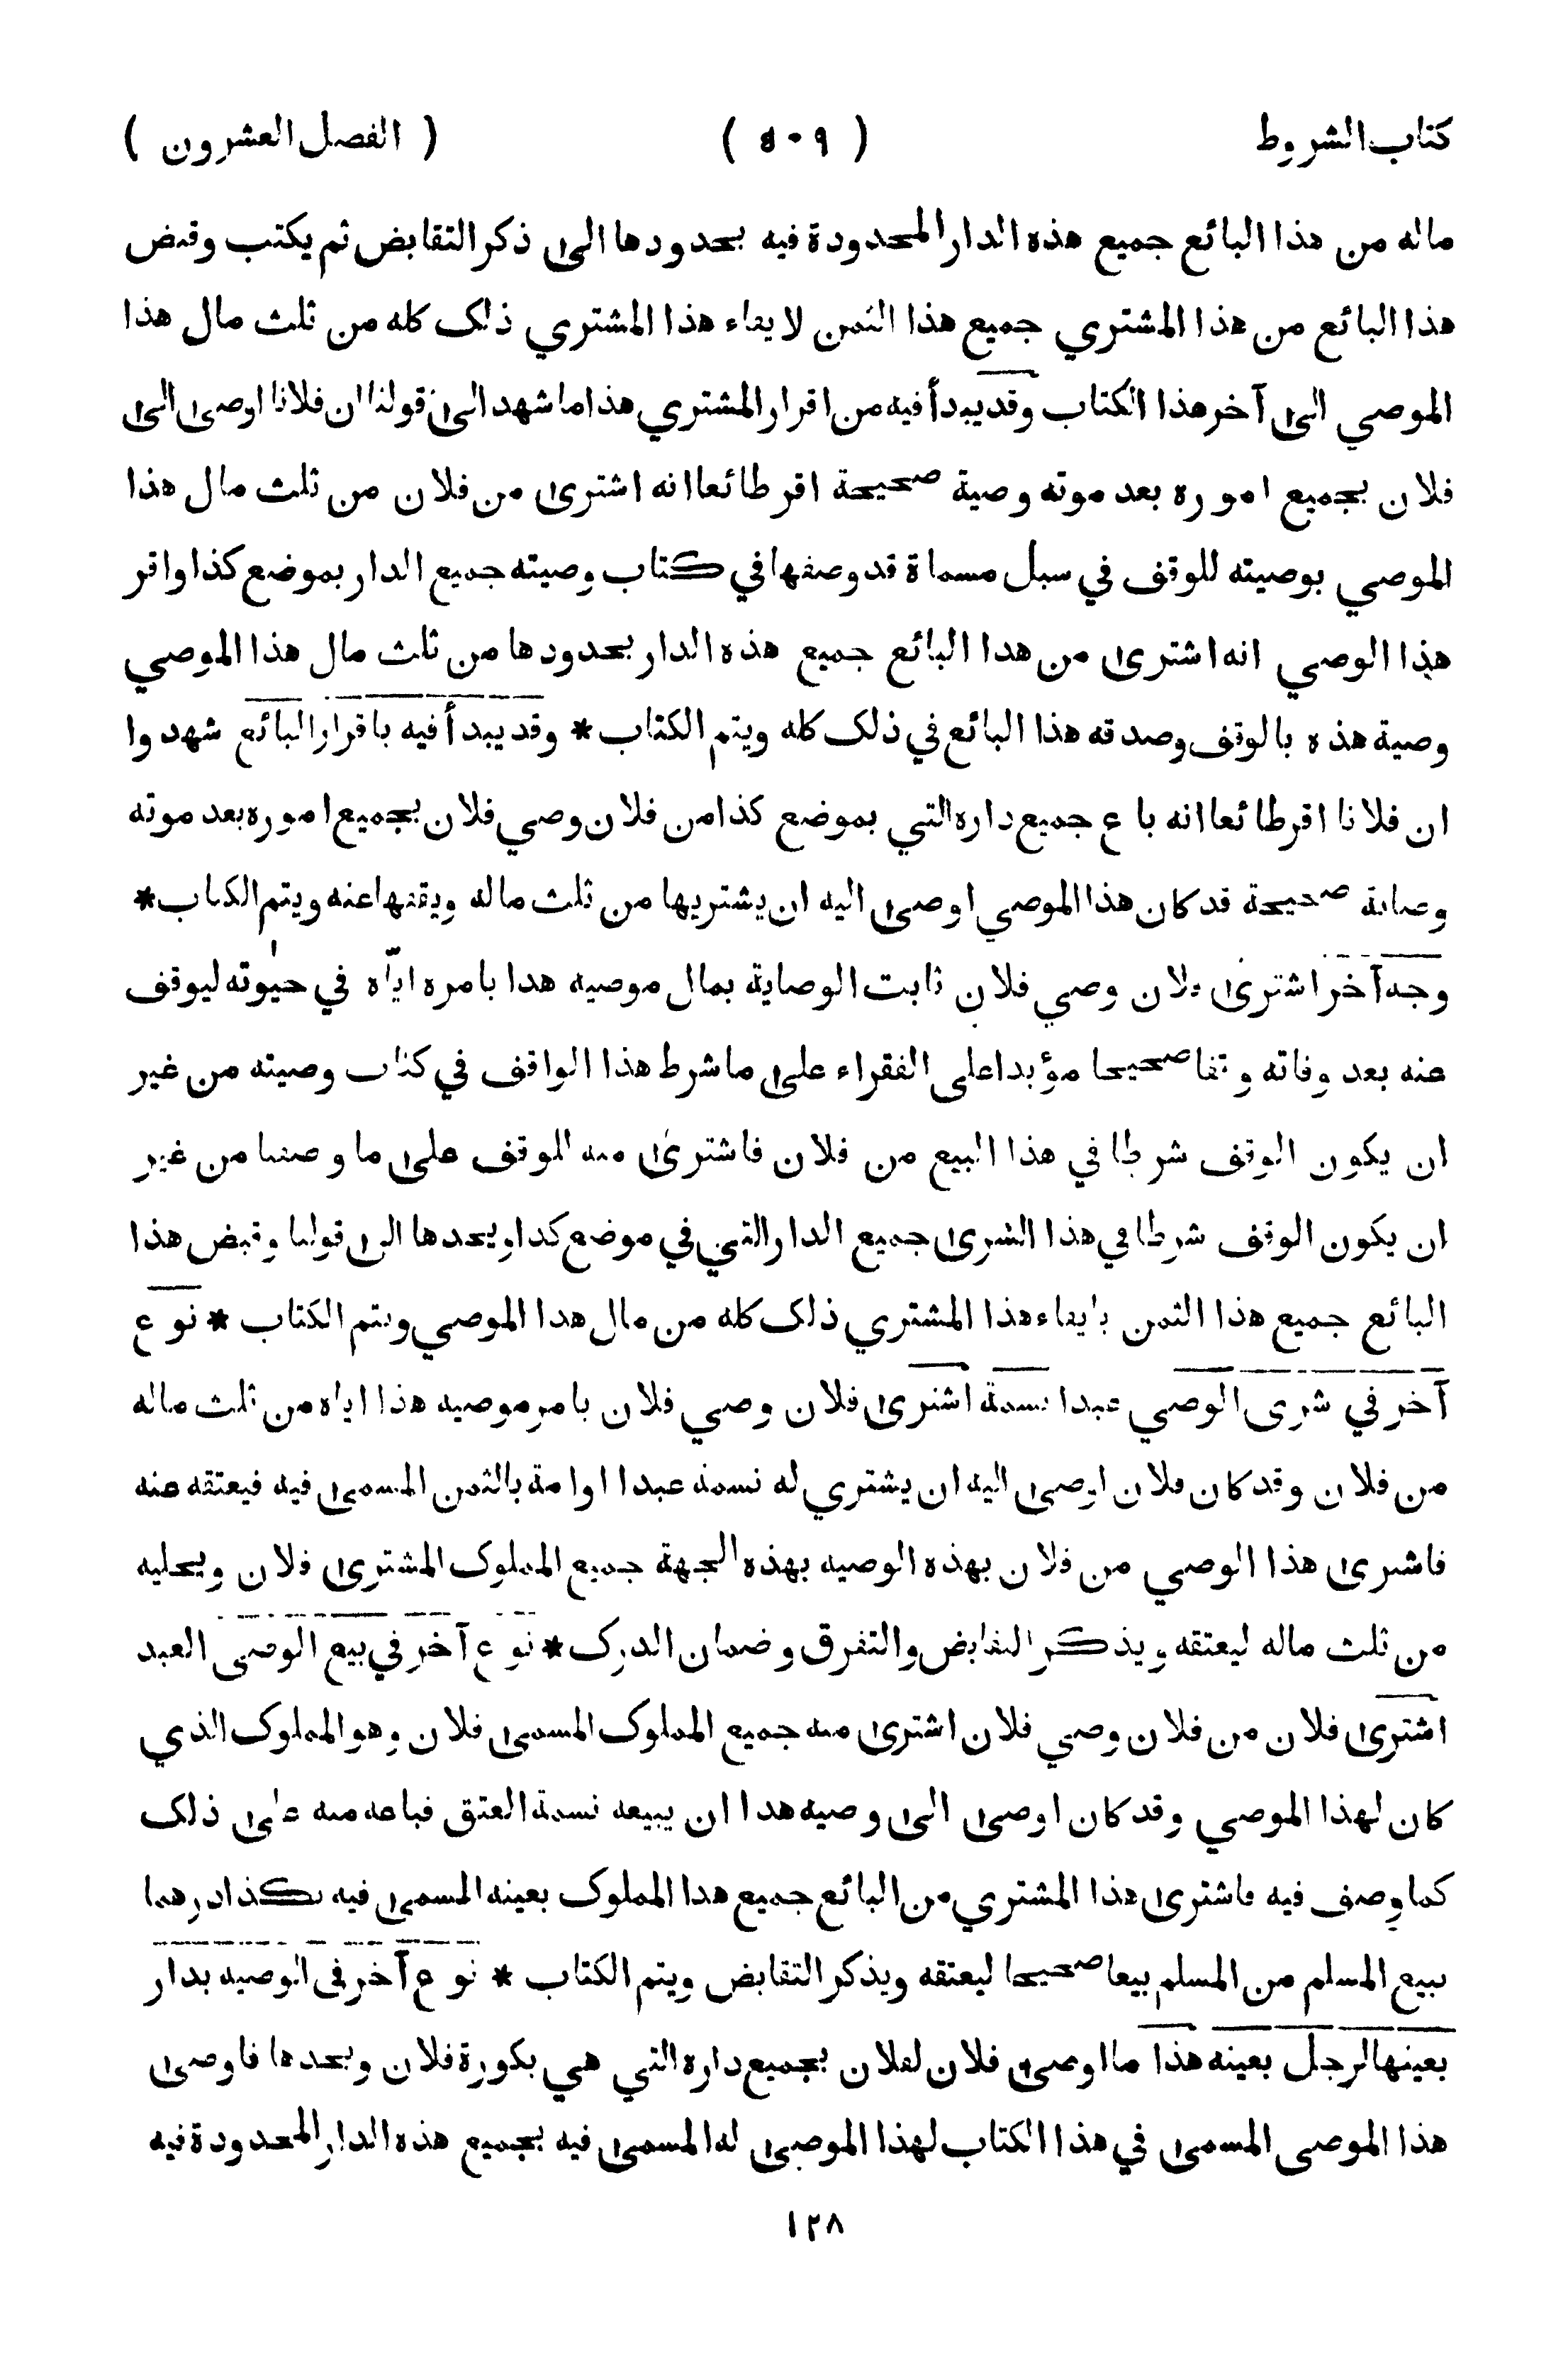 كتاب الشروط ( ٥٠٩ ) ( الفصل العشرون )
ماله من هذا البائع جميع هذه الدار المحدودة فيه بحدودها الى ذكر التقابض ثم يكتب وقبض
هذا البائع من هذا المشتري جميع هذا الثمن لايفاء هذا المشتري ذلك كله من ثلث مال هذا
الموصي الى آخر هذا الكتاب وقد يبدأ فيه من اقرار المشتري هذا ما شهد الى قولنا ان فلانا اوصى الى
فلان بجميع اموره بعد موته وصية صحيحة اقر طائعا انه اشترى من فلان من ثلث مال هذا
الموصي بوصيته للوقف في سبل مسماة قد وصفها في كتاب وصيته جميع الدار بموضع كذا واقر
هذا الوصي انه اشترى من هذا البائع جميع هذه الدار بحدودها من ثلث مال هذا الموصي
وصية هذه بالوقف وصدقه هذا البائع في ذلك كله ويتم الكتاب * وقد يبدأ فيه باقرار البائع شهدوا
ان فلانا اقر طائعا انه باع جميع داره التي بموضع كذا من فلان وصي فلان بجميع اموره بعد موته
وصاية صحيحة قد كان هذا الموصي اوصى اليه ان يشتريها من ثلث ماله ويقفها عنه ويتم الكتاب *
وجه آخر اشترى فلان وصي فلان ثابت الوصاية بمال موصيه هذا بامره اياه في حيوته ليوقف
عنه بعد وفاته وقفا صحيحا مؤبدا على الفقراء على ما شرط هذا الواقف في كتاب وصيته من غير
ان يكون الوقف شرطا في هذا البيع من فلان فاشترى منه الموقف على ما وصفنا من غير
ان يكون الوقف شرطا في هذا الشرى جميع الدار التي في موضع كذا ويحدها الى قولنا وقبض هذا
البائع جميع هذا الثمن بايفاء هذا المشتري ذلك كله من مال هذا الموصي ويتم الكتاب * نوع
آخر في شرى الوصي عبدا نسمة اشترى فلان وصي فلان بامر موصيه هذا اياه من ثلث ماله
من فلان وقد كان فلان اوصى اليه ان يشتري له نسمة عبدا او امة بالثمن المسمى فيه فيعتقه عنه
فاشترى هذا الوصي من فلان بهذه الوصيه بهذه الجهة جميع المملوك المشترى فلان ويحليه
من ثلث ماله ليعتقه ويذكر التقابض والتفرق وضمان الدرك * نوع آخر في بيع الوصى العبد
اشترى فلان من فلان وصي فلان اشترى منه جميع المملوك المسمى فلان وهو المملوك الذي
كان لهذا الموصي وقد كان اوصى الى وصيه هذا ان يبيعه نسمة العتق فباعه منه على ذلك
كما وصف فيه فاشترى هذا المشتري من البائع جميع هذا المملوك بعينه المسمى فيه بكذا درهما
ببيع المسلم من المسلم بيعا صحيحا ليعتقه ويذكر التقابض ويتم الكتاب * نوع آخر فى الوصيه بدار
بعينها لرجل بعينه هذا ما اوصى فلان لفلان بجميع داره التي هي بكورة فلان ويحدها فاوصى
هذا الموصى المسمى في هذا الكتاب لهذا الموصى له المسمى فيه بجميع هذه الدار المحدودة فيه
١٢٨